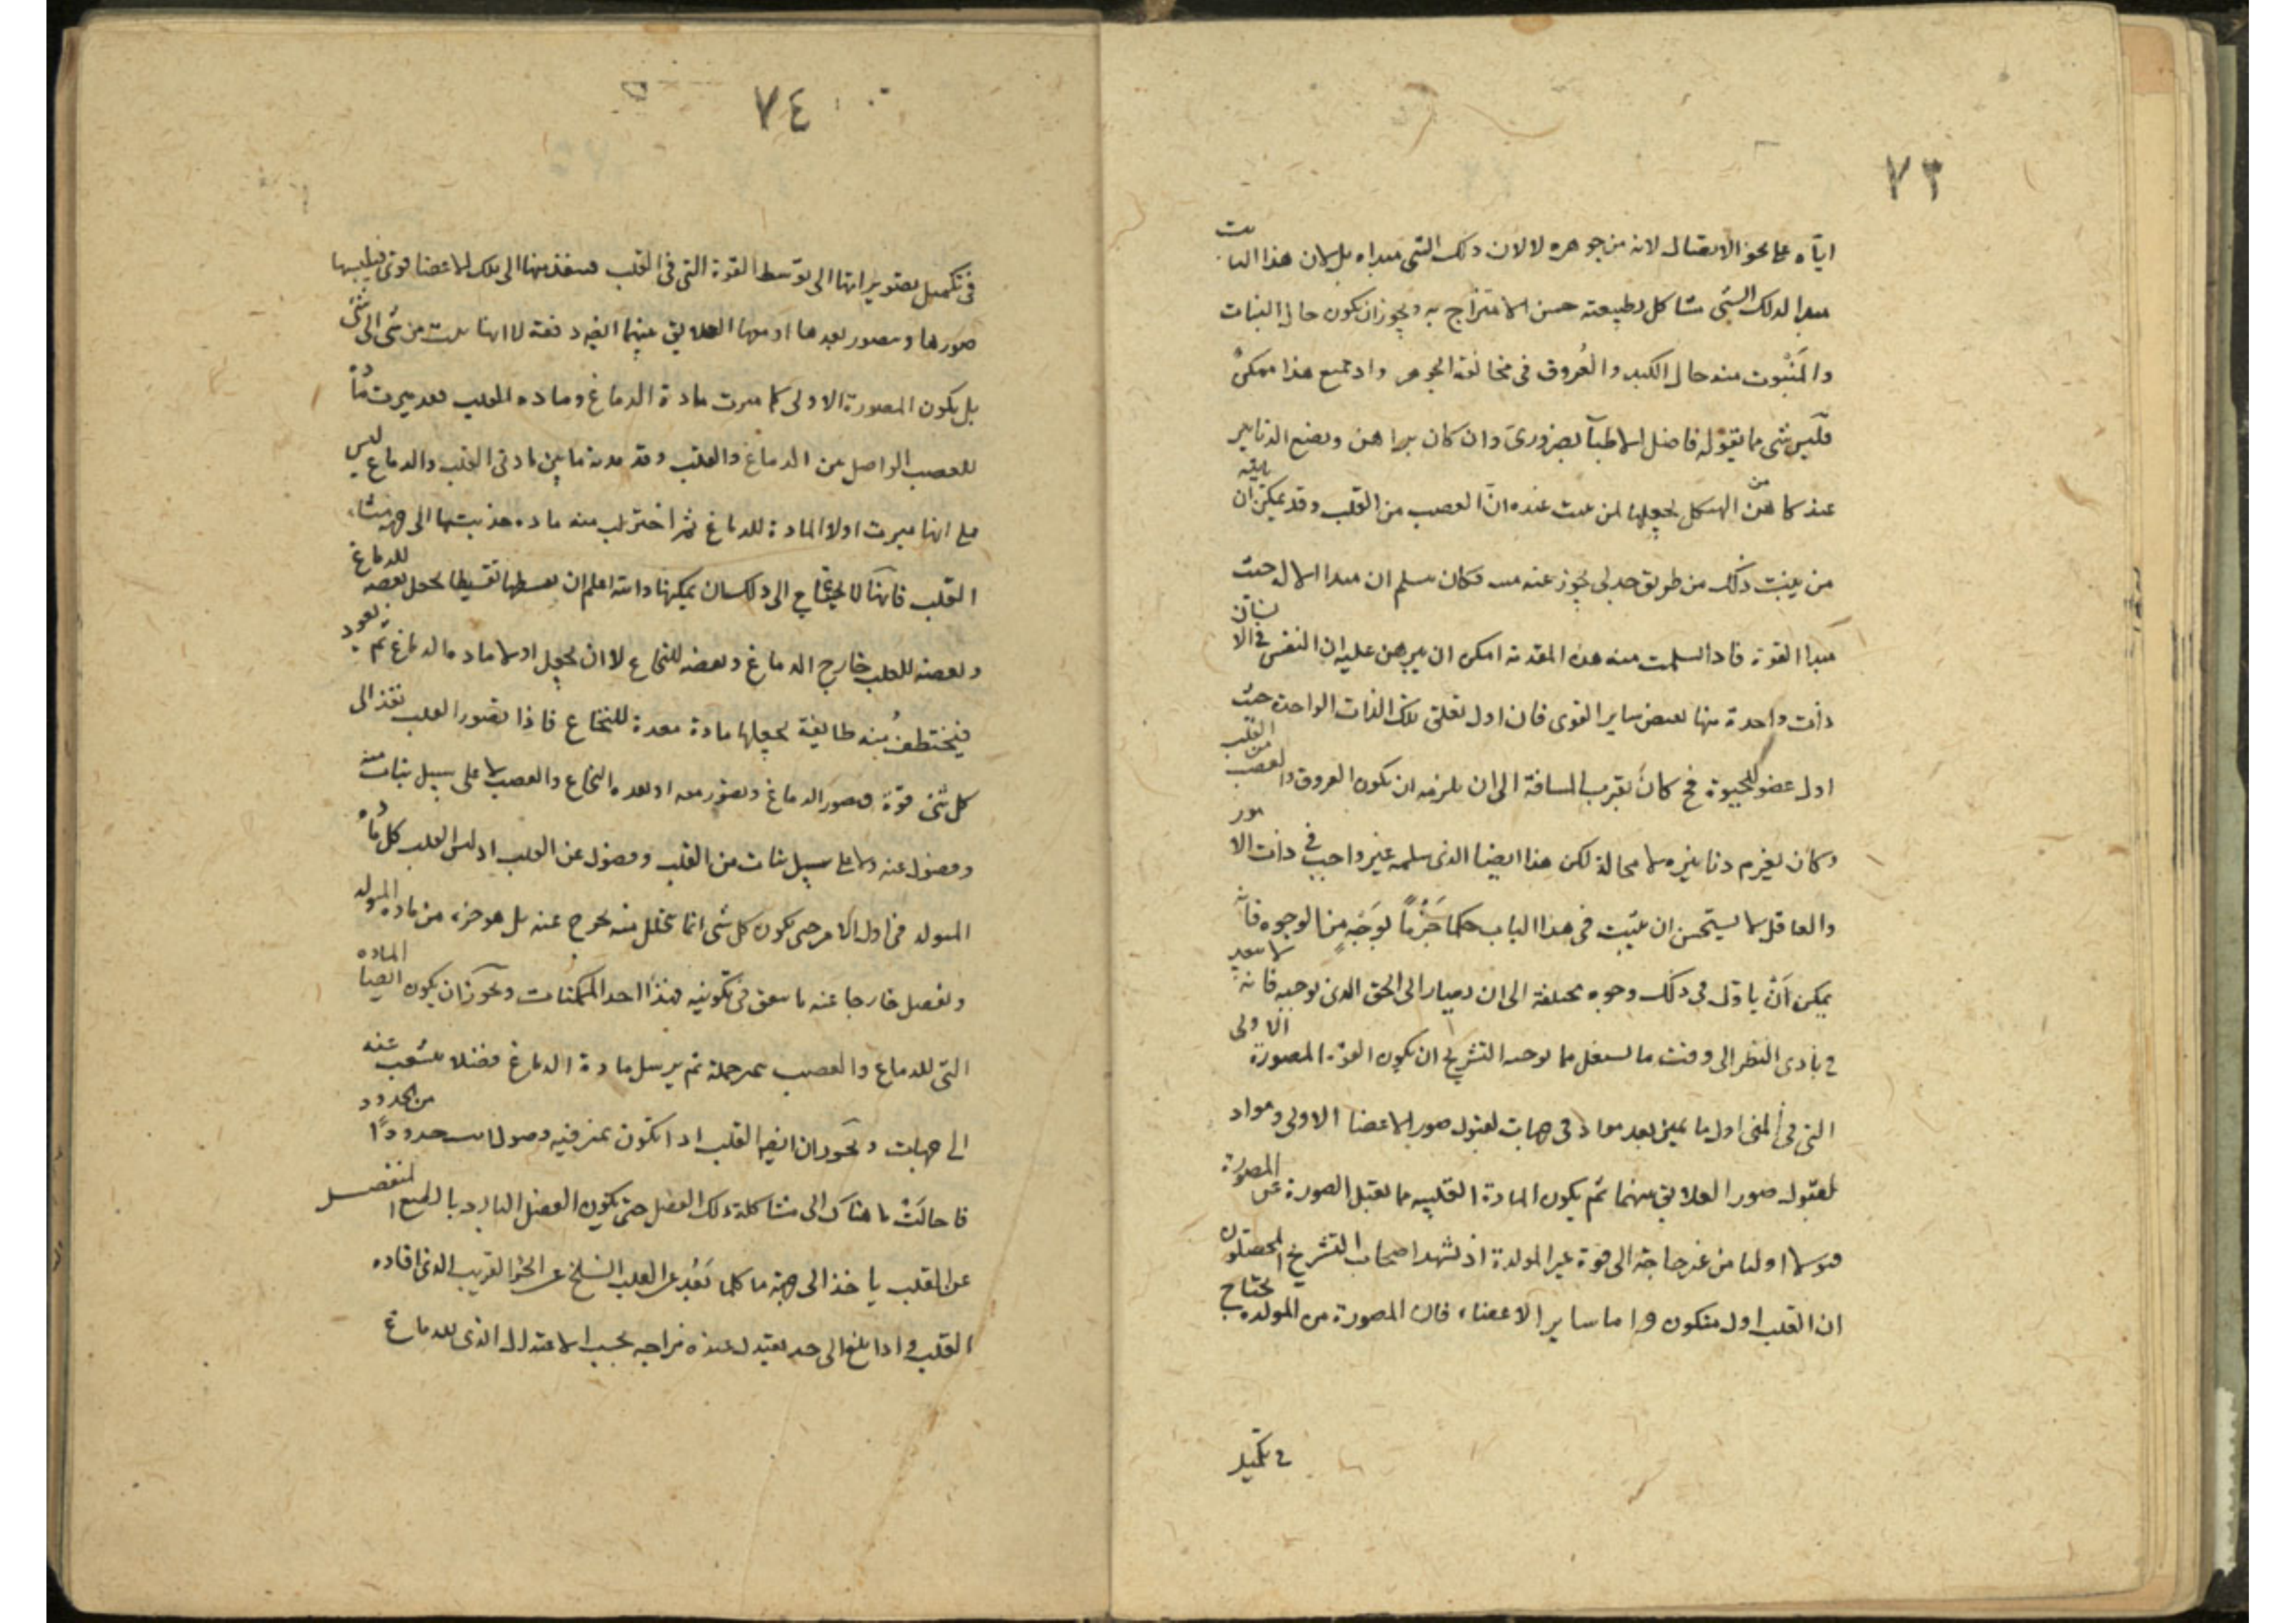 ٧٣
اياه على نحو الاتصال لانه من جوهره لا لان ذلك الشى مبداه بل لان هذا النابت
مبدا لذلك الشى مشاكل لطبيعته حسن الامتزاج به ويجوز ان تكون حال النبات
والمَنْبُوت منه حال الكبد والعُروق فى مخالفة الجوهر واذ جميع هذا ممكن
فليس شى مما يقوله فاضل الاطبآ بضرورى وان كان براهن ويضع الدنانير
عند كاهن من الهيكل يجعلها لمن يثبت عنده انّ العصب من القلب وقد يمكن ان
من يثبت ذلك من طريق جدلى يجوز عنه فكان يسلم ان مبدا الاله حيث
مبدا القوة فاذا سلمت منه هذه المقدمة امكن ان يبرهن عليه ان النفس فى الانسان
ذات واحدة منها يفيض ساير القوى فان اول تعلق تلك الذات الواحدة حيث
اول عضو للحيوة فح كان يقرب المسافة الى ان يلزمه ان يكون العروق والعصب من القلب
وكان يغرم دنانيره لا محالة لكن هذا ايضا الذى سلمه غير واجب فى ذات الامور
والعاقل لا يستحسن ان يثبت فى هذا الباب حكما جَزْمًا بوَجْهٍ من الوجوه فانه
يمكن اَنْ ياول فى ذلك وجوه مختلفة الى ان يصار الى الحق الذى نوجبه فانه لا يبعد
فى بادى النظر الى وقت ما يستغل مما يوجبه التشريح ان يكون القوة المصورة الاولى
التى فى المنى اول ما يميز يعد مواد فى جهات لقبول صور الاعضا الاولى ومواد
لقبول صور العلايق بينهما ثم يكون المادة القلبيه مما يقبل الصورة عن المصورة
قبولا اوليا من غير حاجة الى قوة غير المولدة اذ شهد اصحاب التشريح المحصلون
ان القلب اول متكون واما ساير الاعضاء فان المصورة من المولده يحتاج
فى تكميل
٧٤
فى تكميل تصويراتها الى توسط القوة التى فى القلب فينفذ منها الى تلك الاعضا قوى فيلبسها
صورها ويصور بعدها او معها العلايق بينهما ايضا دفعة لا انها نبت من شى الى شى
بل يكون المصورة الاولى كما ميرت مادة الدماغ وماده القلب فقد ميرت مادّة
للعصب الواصل بين الدماغ والقلب وقد مدته ما بين مادتى القلب والدماغ ليس
على انها ميرت اولا المادة للدماغ ثم اختزلت منه ماده جذبتها الى جهة منشاء
القلب فانها لا يحتاج الى ذلك بل يمكنها والله اعلم ان يقسطها تقسيطا يجعل بعضه للدماغ
وبعضه للقلب خارج الدماغ وبعضه للنخاع لا ان يجعل اولا ماده الدماغ ثم يعود
فيختطف مُنه طايفة يجعلها مادة معدة للنخاع فاذا تصور القلب نفذ الى
كل شئ قوة فصور الدماغ وتصور معه او بعده النخاع والعصب لا على سبيل نبات منه
وفضول عنه ولا على سبيل نبات من القلب وفضول عن القلب اذ ليس القلب كل مادّه
المتولد فى اول الامر حتى يكون كل شى انما يتخلل منه يخرج عنه بل هو جزء من ماده المولد
ويفصل خارجا عنه ما يبقى فى تكوينه فهذا احد الممكنات ويجوز ان يكون ايضا الماده
التى للدماغ والعصب يميز جملة ثم يرسل مادة الدماغ فضلا يتشعب عنه
الى جهات ويجوز ان ايضا القلب اذا تكون تميز فيه فضول من الحدود
فاحالَتْ ما هناك الى مشاكلة ذلك الفضل حتى يكون الفضل البارد بالطبع المنفصل
عن القلب ياخذ الى جهة ما كلما بَعُد عن القلب انسلخ عن الحر القريب الذى افاده
القلب واذا بلغ الى حد يعتدل عنده مزاجه بحسب الاعتدال الذى للدماغ